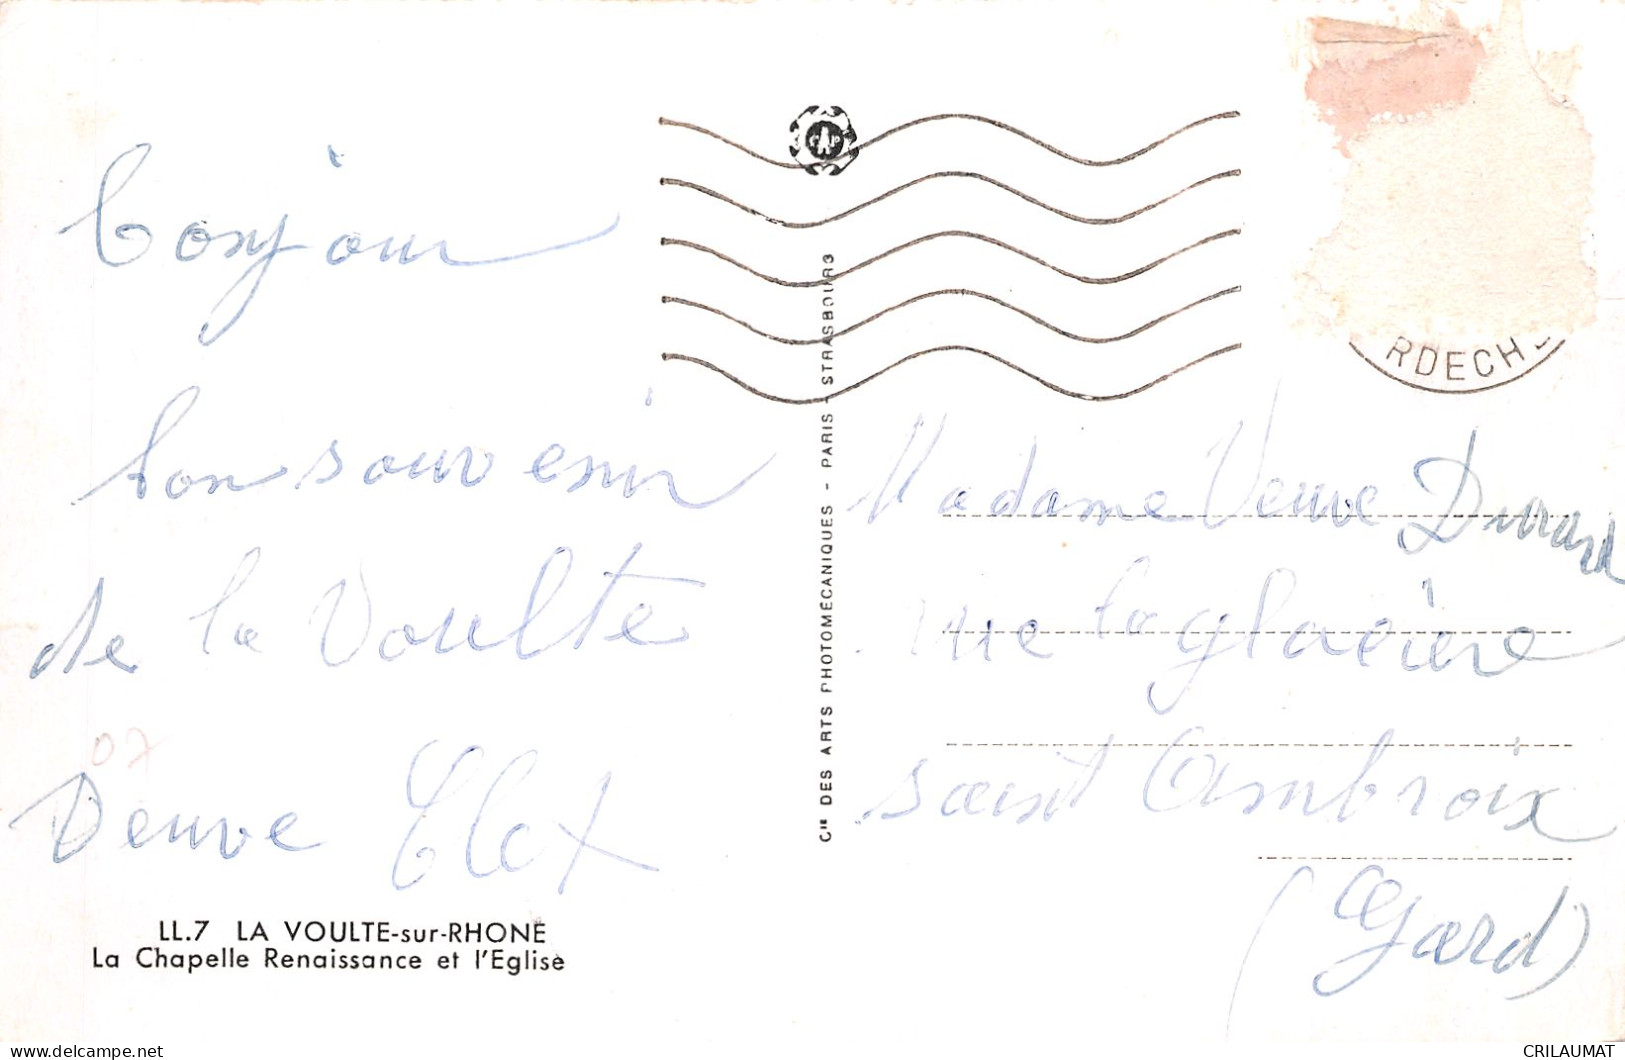 Bonjour
bon souvenir
de la Voulte
07
LL.7 LA VOULTE-sur-RHONE
La Chapelle Renaissance et l'Eglise
Cie DES ARTS PHOTOMECANIQUES - PARIS - STRASBOURG
RDECHE
Madame Veuve Durand
rue la glacière
saint Ambroix
(Gard)
delcampe.net
CRILAUMAT